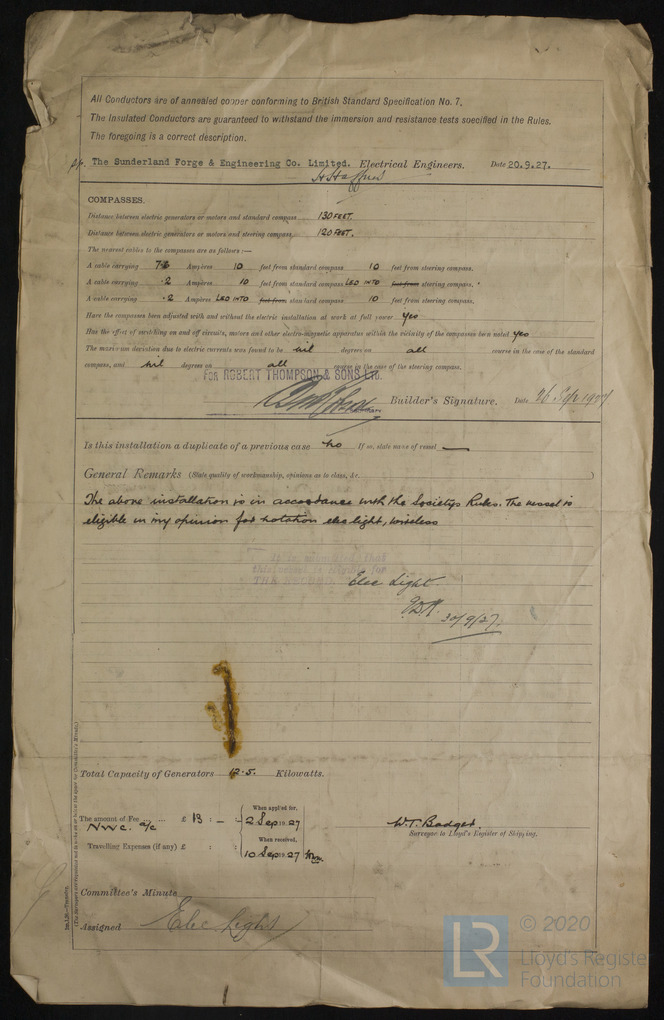 All Conductors are of annealed copper conforming to British Standard Specification No. 7,
The Insulated Conductors are guaranteed to withstand the immersion and resistance tests specified in the Rules.
The foregoing is a correct description.
pp. The Sunderland Forge & Engineering Co. Limited. Electrical Engineers. Date 20.9.27.
COMPASSES.
Distance between electric generators or motors and standard compass 130 FEET.
Distance between electric generators or motors and steering compass 120 FEET.
The nearest cables to the compasses are as follows:—
A cable carrying Ampères 10 feet from standard compass 10 feet from steering compass.
A cable carrying .2 Ampères 10 feet from standard compass LED INTO feet from steering compass.
A cable carrying .2 Ampères LED INTO feet from standard compass 10 feet from steering compass.
Have the compasses been adjusted with and without the electric installation at work at full power Yes
Has the effect of switching on and off circuits, motors and other electro-magnetic apparatus within the vicinity of the compasses been noted Yes
The maximum deviation due to electric currents was found to be nil degrees on all course in the case of the standard
compass, and nil degrees on all course in the case of the steering compass.
FOR ROBERT THOMPSON & SONS LTD.
Builder's Signature. Date 26 Sep 1927
Is this installation a duplicate of a previous case no If so, state name of vessel —
General Remarks (State quality of workmanship, opinions as to class, &c. )
The above installation is in accordance with the Societys Rules. The vessel is
eligible in my opinion for notation elec light, wireless
It is submitted that
this vessel is eligible for
THE RECORD. Elec Light.
30/9/27.
Total Capacity of Generators 12.5. Kilowatts.
The amount of Fee ... £ 13 : — : When applied for,
NWC. a/c 2 Sep 19 27
When received,
Travelling Expenses (if any) £ : : 10 Sep 19 27
W.T. Badger.
Surveyor to Lloyd's Register of Shipping.
Committee's Minute
Assigned Elec Light
Im.1.26.—Transfer.
LR © 2020
Lloyd's Register
Foundation